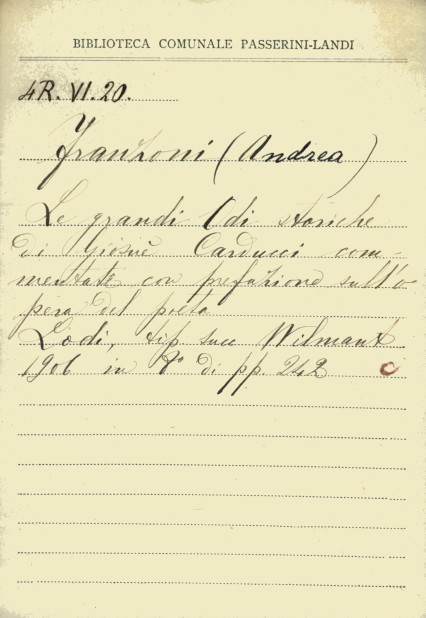 BIBLIOTECA COMUNALE PASSERINI-LANDI
4R. VI. 20.
Franzoni (Andrea)
Le grandi Odi storiche
di Giosuè Carducci com-
mentate con prefazione sull'o
pera del poeta
Lodi, tip succ Wilmant
1906 in 8° di pp. 242